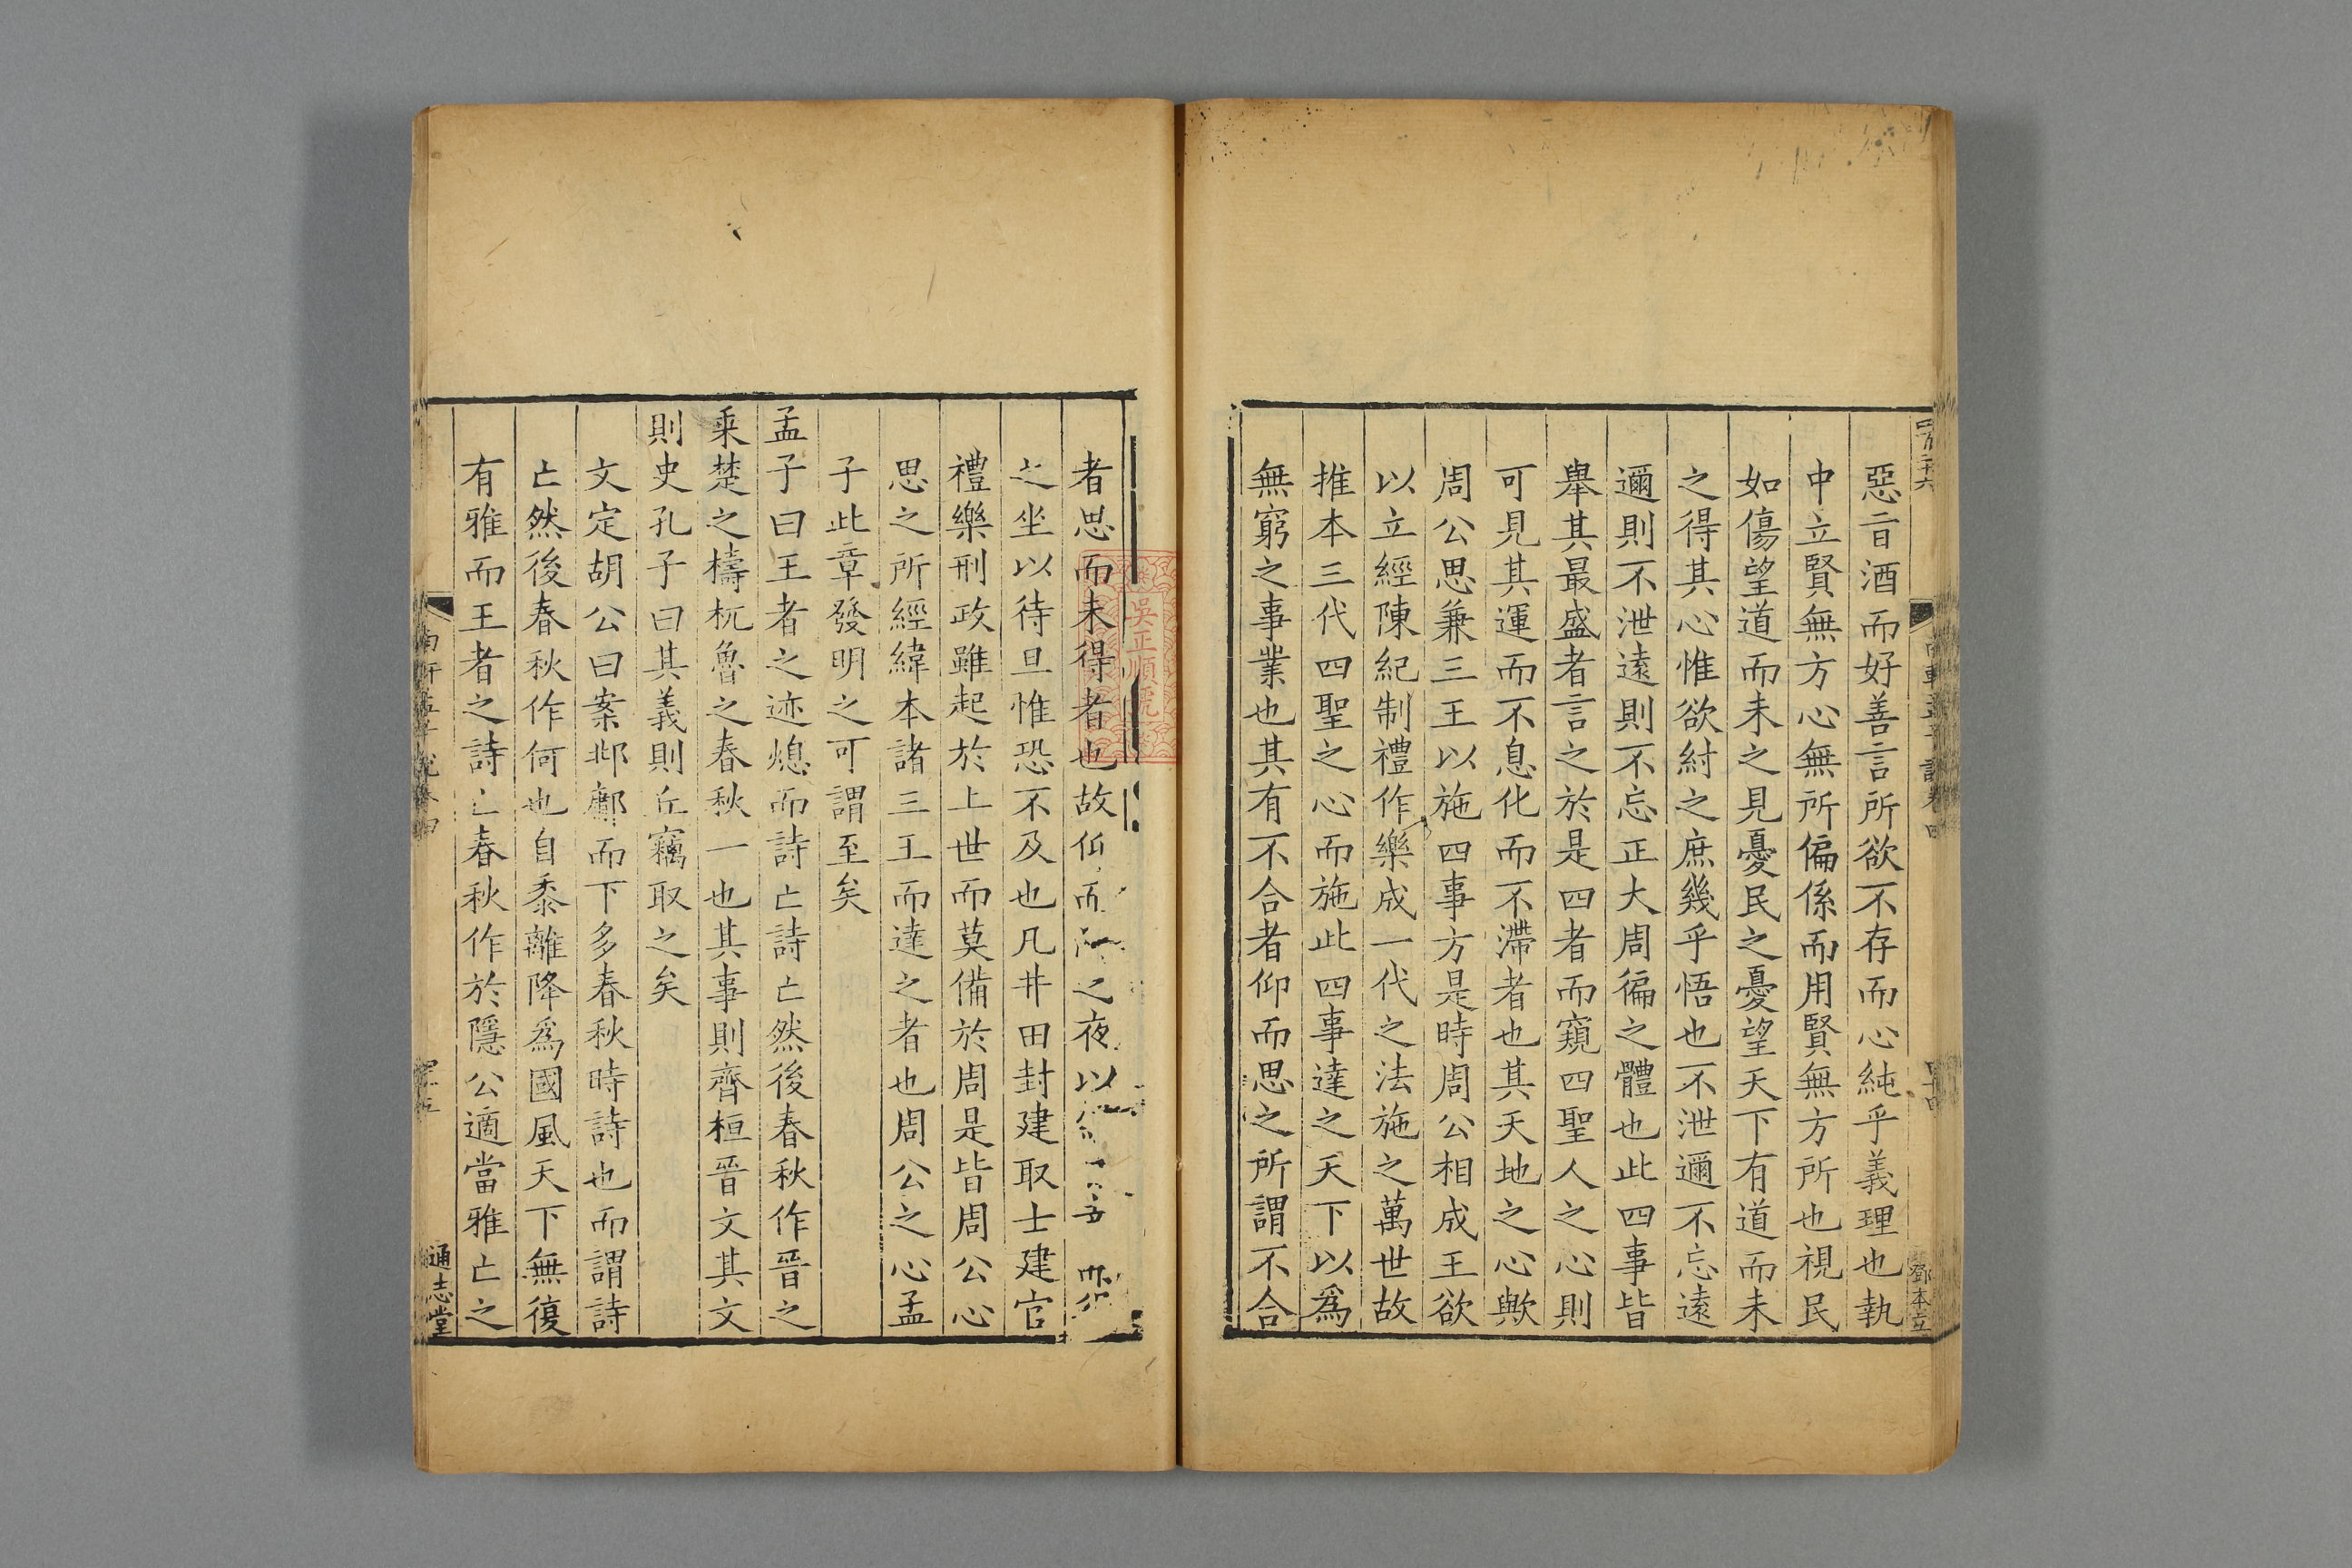 惡旨酒而好善言所欲不存而心純乎義理也執
中立賢無方心無所偏係而用賢無方所也視民
如傷望道而未之見憂民之憂望天下有道而未
之得其心惟欲紂之庶幾乎悟也不泄邇不忘遠
邇則不泄遠則不忘正大周徧之體也此四事皆
舉其最盛者言之於是四者而窺四聖人之心則
可見其運而不息化而不滯者也其天地之心歟
周公思兼三王以施四事方是時周公相成王欲
以立經陳紀制禮作樂成一代之法施之萬世故
推本三代四聖之心而施此四事達之天下以爲
無窮之事業也其有不合者仰而思之所謂不合
鄧本立
者思而未得者也故仰而 之夜以
之坐以待旦惟恐不及也凡井田封建取士建官
禮樂刑政雖起於上世而莫備於周是皆周公心
思之所經緯本諸三王而達之者也周公之心孟
子此章發明之可謂至矣
孟子曰王者之迹熄而詩亡詩亡然後春秋作晉之
乘楚之檮杌魯之春秋一也其事則齊桓晉文其文
則史孔子曰其義則丘竊取之矣
文定胡公曰案邶鄘而下多春秋時詩也而謂詩
亡然後春秋作何也自黍離降爲國風天下無復
有雅而王者之詩亡春秋作於隱公適當雅亡之
通志堂
吳正順號